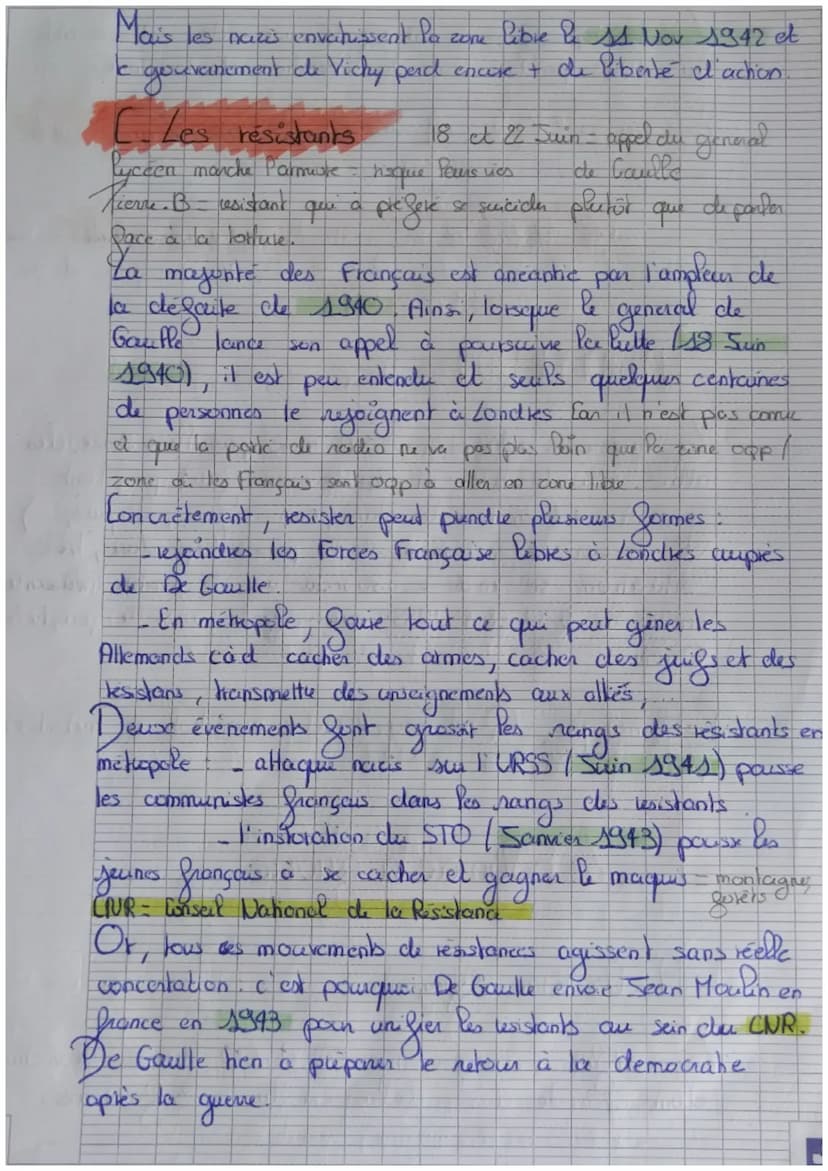 Mais les nazis envahissent la zone libre le 11 Nov 1942 et
le gouvernement de Vichy perd encore + de liberté d'action.
C - Les résistants 18 et 22 Juin = appel du général
lycéen marche l'armiste = risque leurs vies de Gaulle
Pierre.B = resistant qui à préféré se suicider plutôt que de parler
face à la torture.
La majorité des Français est anéantie par l'ampleur de
la défaite de 1940. Ainsi, lorsque le general de
Gaulle lance son appel à poursuivre la lutte (18 Juin
1940), il est peu entendu et seuls quelques centaines
de personnes le rejoignent à Londres Car il n'est pas connu
et que la porté de radio ne va pas plus loin que la zone occp /
zone où les français sont occp à aller en zone libre.
Concrètement, resister peut pundre plusieurs formes :
- rejoindres les Forces Française libres à Londres auprès
de De Gaulle.
- En métropole, faire tout ce qui peut gêner les
Allemands càd cacher des armes, cacher des juifs et des
résistans, transmettre des unseignements aux alliés, ...
Deux événements font grossir les rangs des résistants en
métropole : - attaque nazis sur l'URSS (Juin 1941) pousse
les communistes français dans les rangs des resistants.
- l'instoration du STO (Janvier 1943) pousse les
jeunes français à se cacher et gagner le maquis = montagnes,
forêts
CNR = Conseil National de la Résistance
Or, tous ces mouvements de résistances agissent sans réelle
concertation. c'est pourquoi De Gaulle envoie Jean Moulin en
france en 1943 pour unifier les resistants au sein du CNR.
De Gaulle tien à préparer le retour à la democratie
après la guerre.